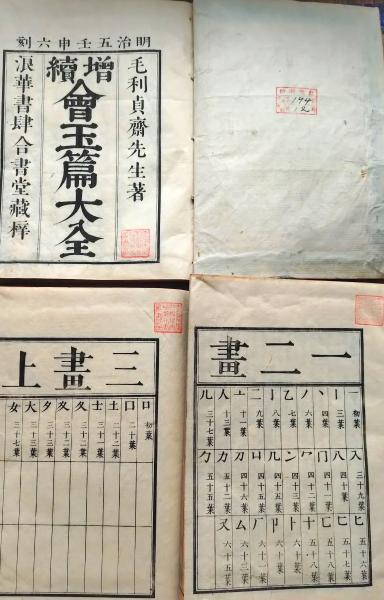 明治五壬申六刻
毛利貞齋先生著
增續會玉篇大全
浪華書肆合書堂藏梓
一二畫
一 初葉
丨 三葉
丶 四葉
丿 六葉
乙 七葉
亅 八葉
二 九葉
亠 十一葉
人 十三葉
儿 三十七葉
入 三十九葉
八 四十葉
冂 四十一葉
冖 四十二葉
冫 四十三葉
几 四十四葉
凵 四十五葉
刀 四十六葉
力 五十二葉
勹 五十五葉
匕 五十六葉
匚 五十七葉
匸 五十八葉
十 五十八葉
卜 六十葉
卩 六十葉
厂 六十一葉
厶 六十三葉
又 六十五葉
三畫上
口 初葉
囗 二十葉
土 二十二葉
士 三十一葉
夂 三十二葉
夊 三十二葉
夕 三十三葉
大 三十三葉
女 三十七葉